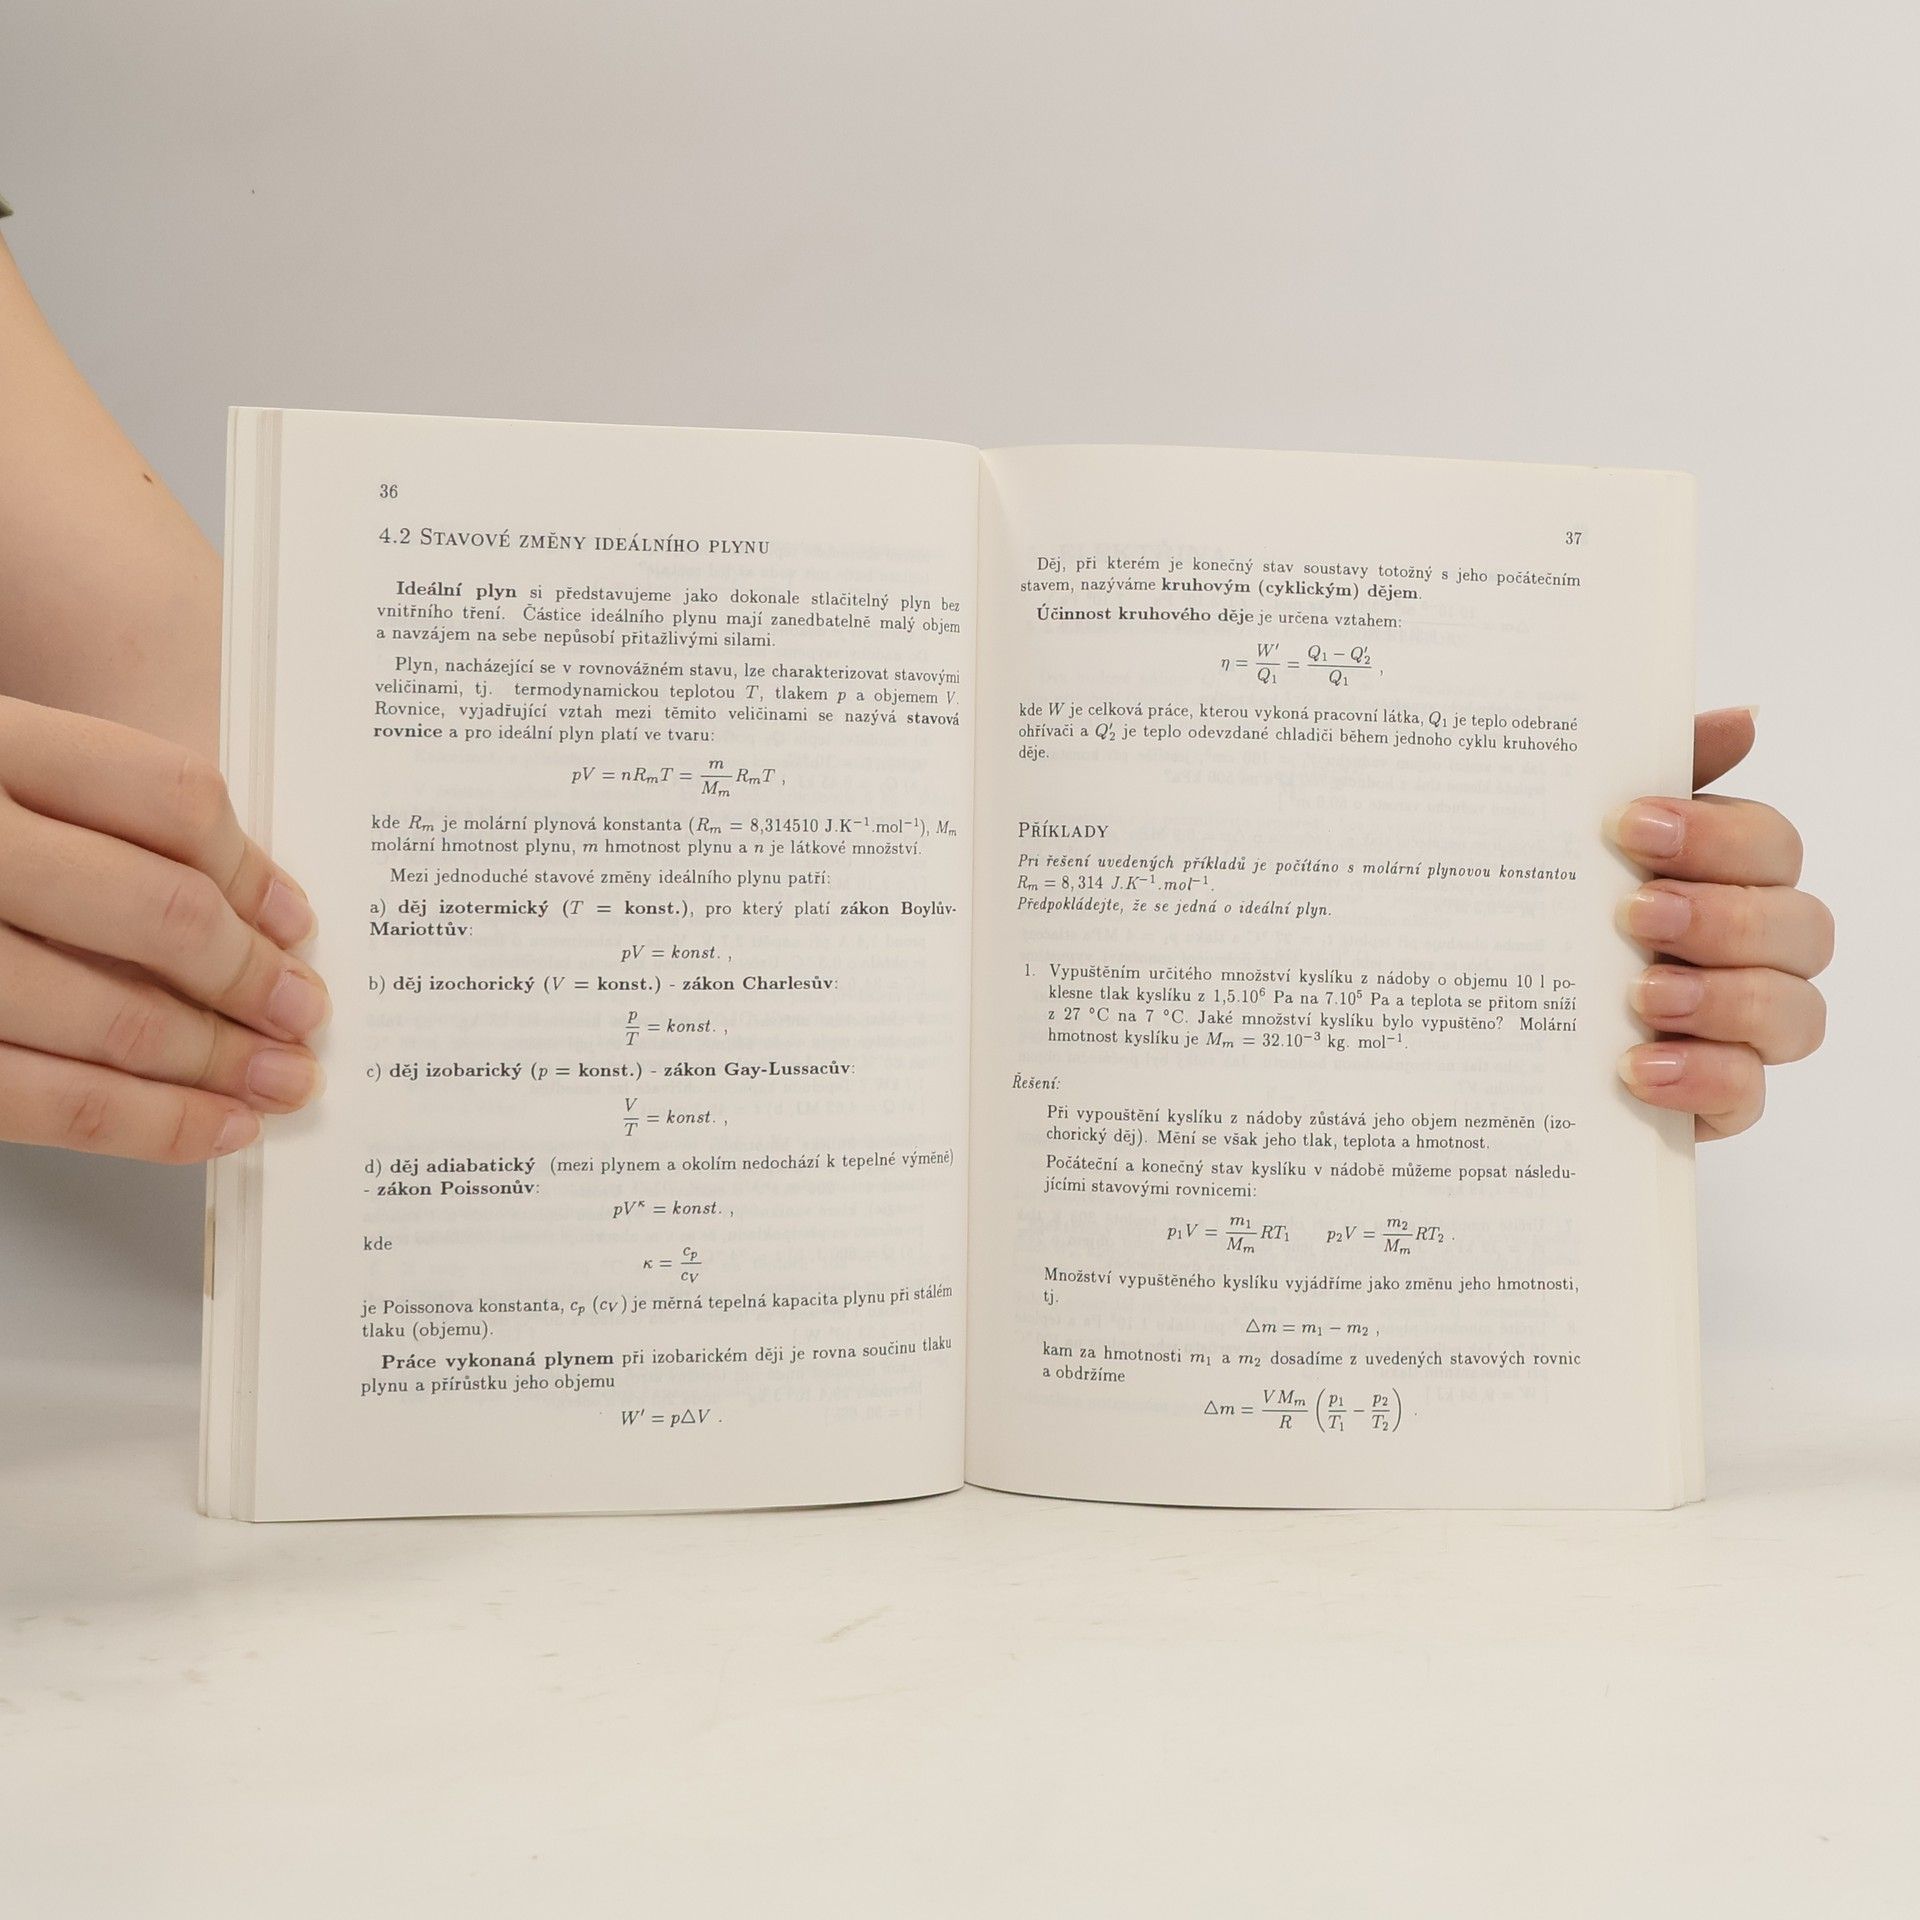 36
4.2 STAVOVÉ ZMĚNY IDEÁLNÍHO PLYNU
Ideální plyn si představujeme jako dokonale stlačitelný plyn bez
vnitřního tření. Částice ideálního plynu mají zanedbatelně malý objem
a navzájem na sebe nepůsobí přitažlivými silami.
Plyn, nacházející se v rovnovážném stavu, lze charakterizovat stavovými
veličinami, tj. termodynamickou teplotou T, tlakem p a objemem V.
Rovnice, vyjadřující vztah mezi těmito veličinami se nazývá stavová
rovnice a pro ideální plyn platí ve tvaru:
pV = nRₘT = m/Mₘ RₘT ,
kde Rₘ je molární plynová konstanta (Rₘ = 8,314510 J.K⁻¹.mol⁻¹), Mₘ
molární hmotnost plynu, m hmotnost plynu a n je látkové množství.
Mezi jednoduché stavové změny ideálního plynu patří:
a) děj izotermický (T = konst.), pro který platí zákon Boylův-
Mariottův:
pV = konst. ,
b) děj izochorický (V = konst.) - zákon Charlesův:
p/T = konst. ,
c) děj izobarický (p = konst.) - zákon Gay-Lussacův:
V/T = konst. ,
d) děj adiabatický (mezi plynem a okolím nedochází k tepelné výměně)
- zákon Poissonův:
pV^κ = konst. ,
kde
κ = c_p/c_V
je Poissonova konstanta, c_p (c_V) je měrná tepelná kapacita plynu při stálém
tlaku (objemu).
Práce vykonaná plynem při izobarickém ději je rovna součinu tlaku
plynu a přírůstku jeho objemu
W' = p△V .
37
Děj, při kterém je konečný stav soustavy totožný s jeho počátečním
stavem, nazýváme kruhovým (cyklickým) dějem.
Účinnost kruhového děje je určena vztahem:
η = W'/Q₁ = (Q₁ − Q'₂)/Q₁ ,
kde W je celková práce, kterou vykoná pracovní látka, Q₁ je teplo odebrané
ohřívači a Q'₂ je teplo odevzdané chladiči během jednoho cyklu kruhového
děje.
PŘÍKLADY
Pri řešení uvedených příkladů je počítáno s molární plynovou konstantou
Rₘ = 8,314 J.K⁻¹.mol⁻¹.
Předpokládejte, že se jedná o ideální plyn.
1. Vypuštěním určitého množství kyslíku z nádoby o objemu 10 l po-
klesne tlak kyslíku z 1,5.10⁶ Pa na 7.10⁵ Pa a teplota se přitom sníží
z 27 °C na 7 °C. Jaké množství kyslíku bylo vypuštěno? Molární
hmotnost kyslíku je Mₘ = 32.10⁻³ kg. mol⁻¹.
Řešení:
Při vypouštění kyslíku z nádoby zůstává jeho objem nezměněn (izo-
chorický děj). Mění se však jeho tlak, teplota a hmotnost.
Počáteční a konečný stav kyslíku v nádobě můžeme popsat následu-
jícími stavovými rovnicemi:
p₁V = m₁/Mₘ RT₁ p₂V = m₂/Mₘ RT₂ .
Množství vypuštěného kyslíku vyjádříme jako změnu jeho hmotnosti,
tj.
△m = m₁ − m₂ ,
kam za hmotnosti m₁ a m₂ dosadíme z uvedených stavových rovnic
a obdržíme
△m = VMₘ/R (p₁/T₁ − p₂/T₂) .